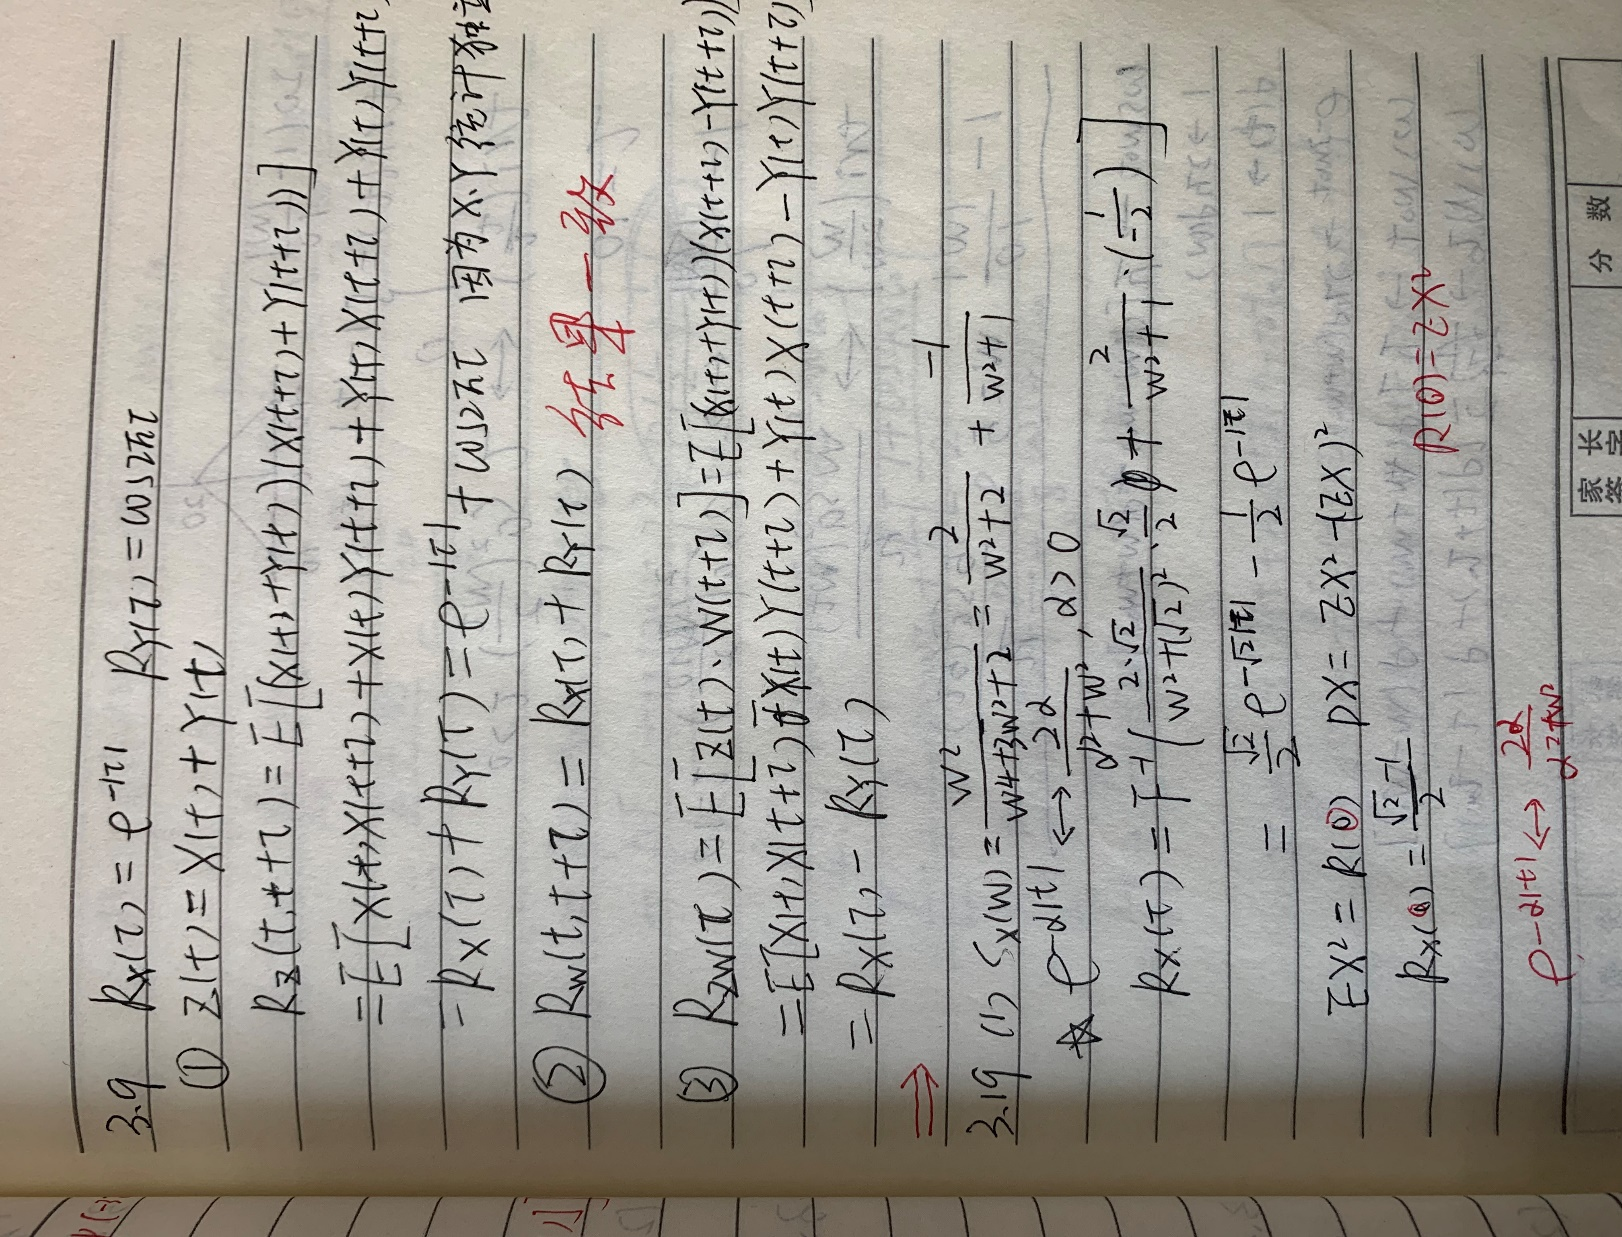 3.9 Rx(τ) = e^-|τ| RY(τ) = cos2πτ
① Z(t) = X(t) + Y(t)
Rz(t,t+τ) = E[(X(t)+Y(t))(X(t+τ)+Y(t+τ))]
=E[X(t)X(t+τ)+X(t)Y(t+τ)+Y(t)X(t+τ)+Y(t)Y(t+τ)
=Rx(τ)+RY(τ)=e^-|τ|+cos2πτ 因为X.Y统计独立
② Rw(t,t+τ) = Rx(τ)+RY(τ) 结果一致
③ Rzw(τ) = E[Z(t)·W(t+τ)]=E[(X(t)+Y(t))(X(t+τ)-Y(t+τ))]
=E[X(t)X(t+τ)-X(t)Y(t+τ)+Y(t)X(t+τ)-Y(t)Y(t+τ)]
=Rx(τ)-RY(τ)
⇒
3.19 (1) Sx(w) = w²/(w4+3w²+2) = 2/(w²+2) + -1/(w²+1)
☆ e^-α|t| ↔ 2α/(α²+w²), α>0
Rx(τ) = F^-1[2·√2/(w²+(√2)²)·√2/2 + 2/(w²+1)·(-1/2)]
= √2/2 e^-√2|τ| - 1/2 e^-|τ|
EX²=R(0) DX=EX²-(EX)²
Rx(0)=(√2-1)/2 R(0)=EX²
e^-α|t| ↔ 2α/(α²+w²)
家长
签字
分数